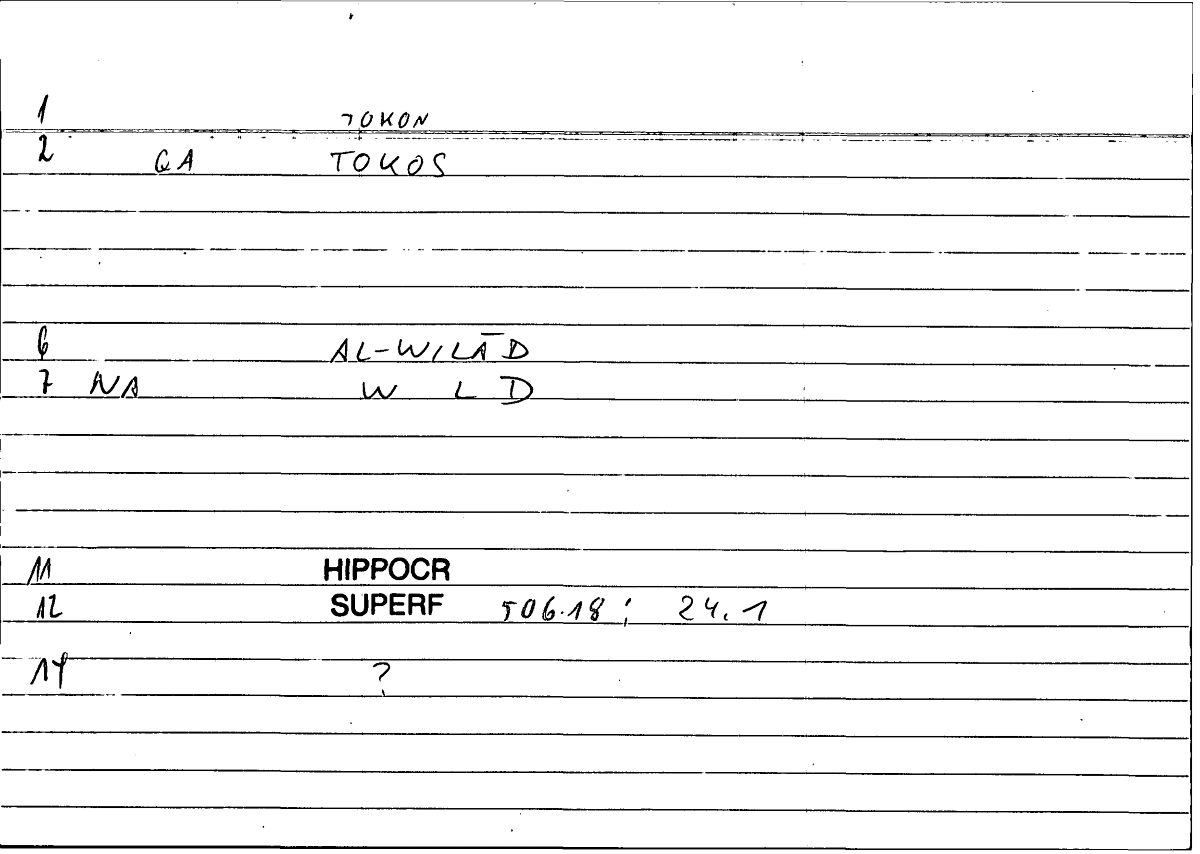 1 TOKON
2 QA TOKOS
6 AL-WILĀD
7 NA W L D
11 HIPPOCR
12 SUPERF 506.18; 24.1
14 ?